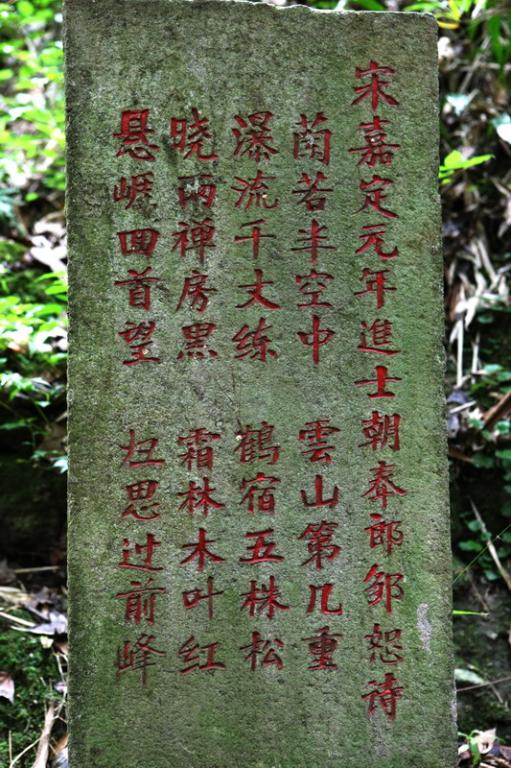 宋嘉定元年進士朝奉郎邹恕诗
蘭若半空中 雲山第几重
瀑流千丈练 鶴宿五株松
晓雨禅房黑 霜林木叶红
悬崕回首望 归思过前峰